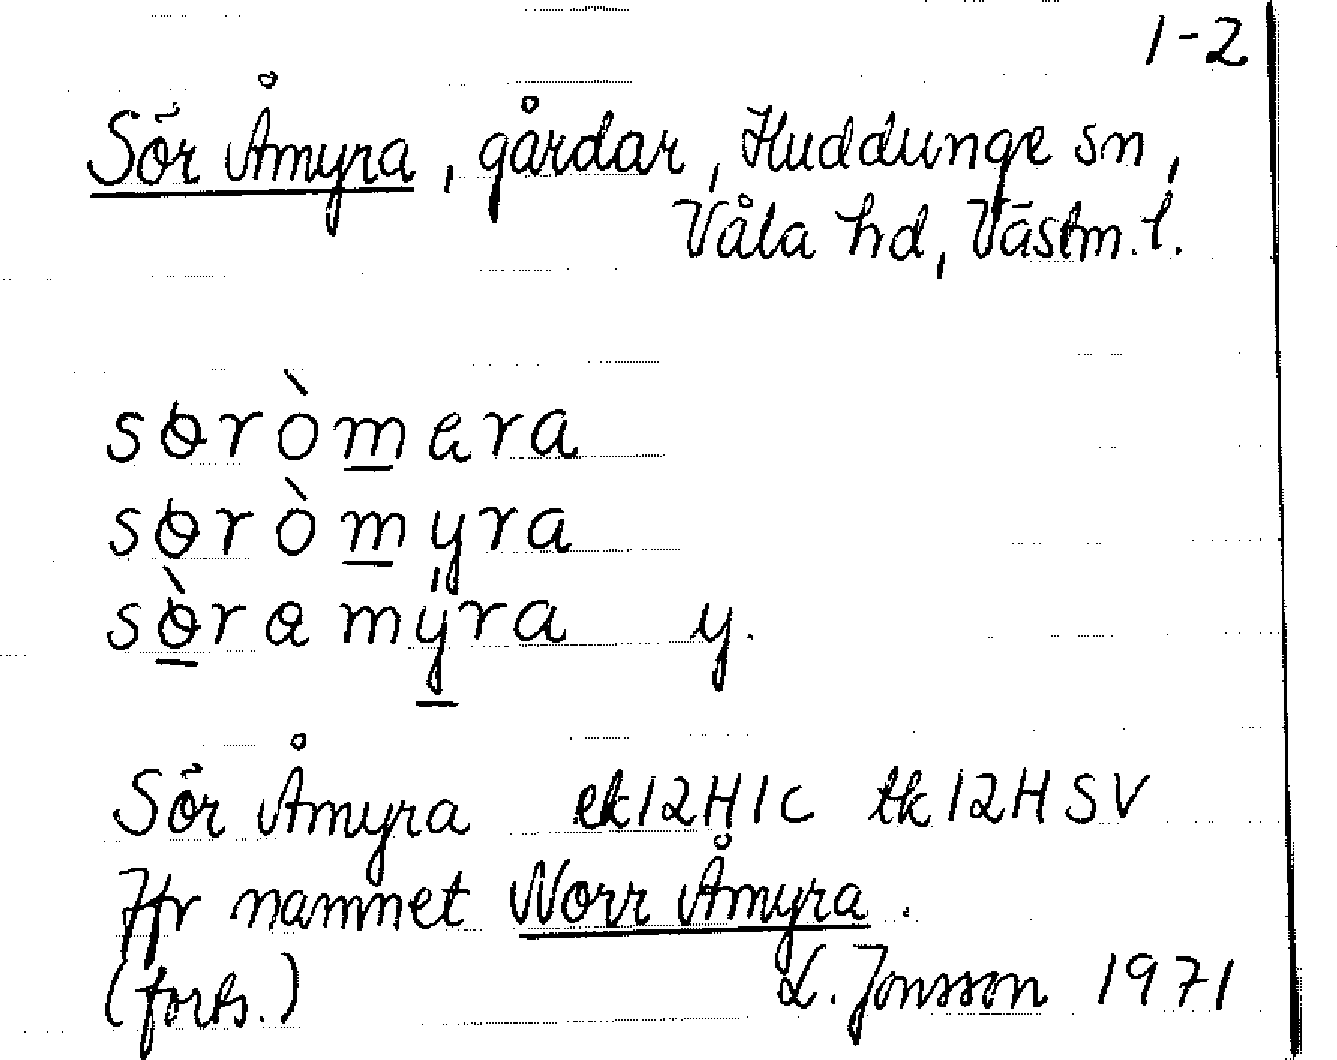 1-2
Sör Åmyra, gårdar, Huddunge sn,
Våla hd, Västm. l.
sɵròmera
sɵròmyra
sɵ̀ramýra y.
Sör Åmyra ek12H1c tk12HSV
Jfr namnet Norr Åmyra.
(forts.) L. Jonsson 1971